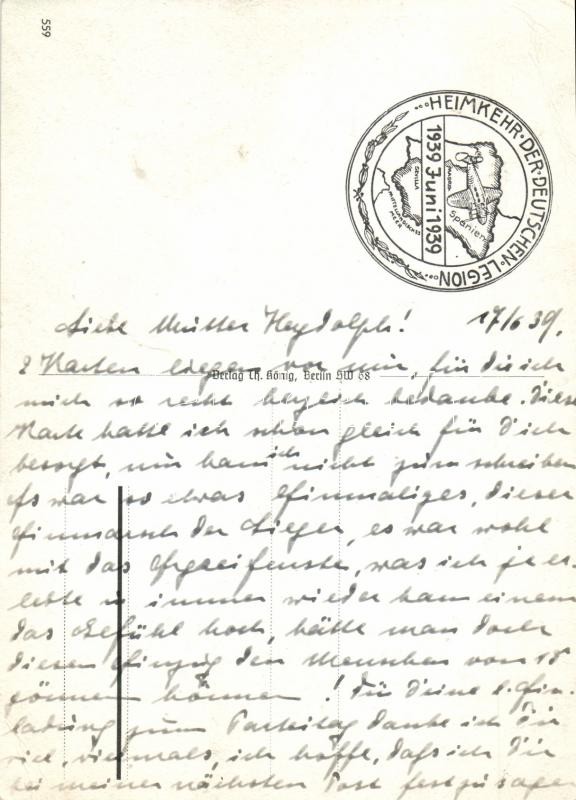 559
HEIMKEHR·DER·DEUTSCHEN·LEGION
1939 Juni 1939
MADRID
SEVILLA
Spanien
MITTELLÄNDISCHES MEER
Liebe Mutter Heydolph! 17/6 39.
2 Karten liegen vor mir, für die ich
Verlag Th. König, Berlin SW 68
mich so recht herzlich bedanke. Diese
Karte hatte ich schon gleich für Dich
besorgt, nur kam ich nicht zum schreiben
Es war so etwas Einmaliges, dieser
Einmarsch der Sieger, es war wohl
mit das Ergreifenste, was ich je er-
lebte u immer wieder kam einem
das Gefühl hoch, hätte man doch
diesen Einzug den Menschen von 18
gönnen können! Für Deine l. Ein-
ladung zum Parteitag danke ich Dir
viel, vielmals, ich hoffe, daß ich Dir
bei meiner nächsten Post festzusagen